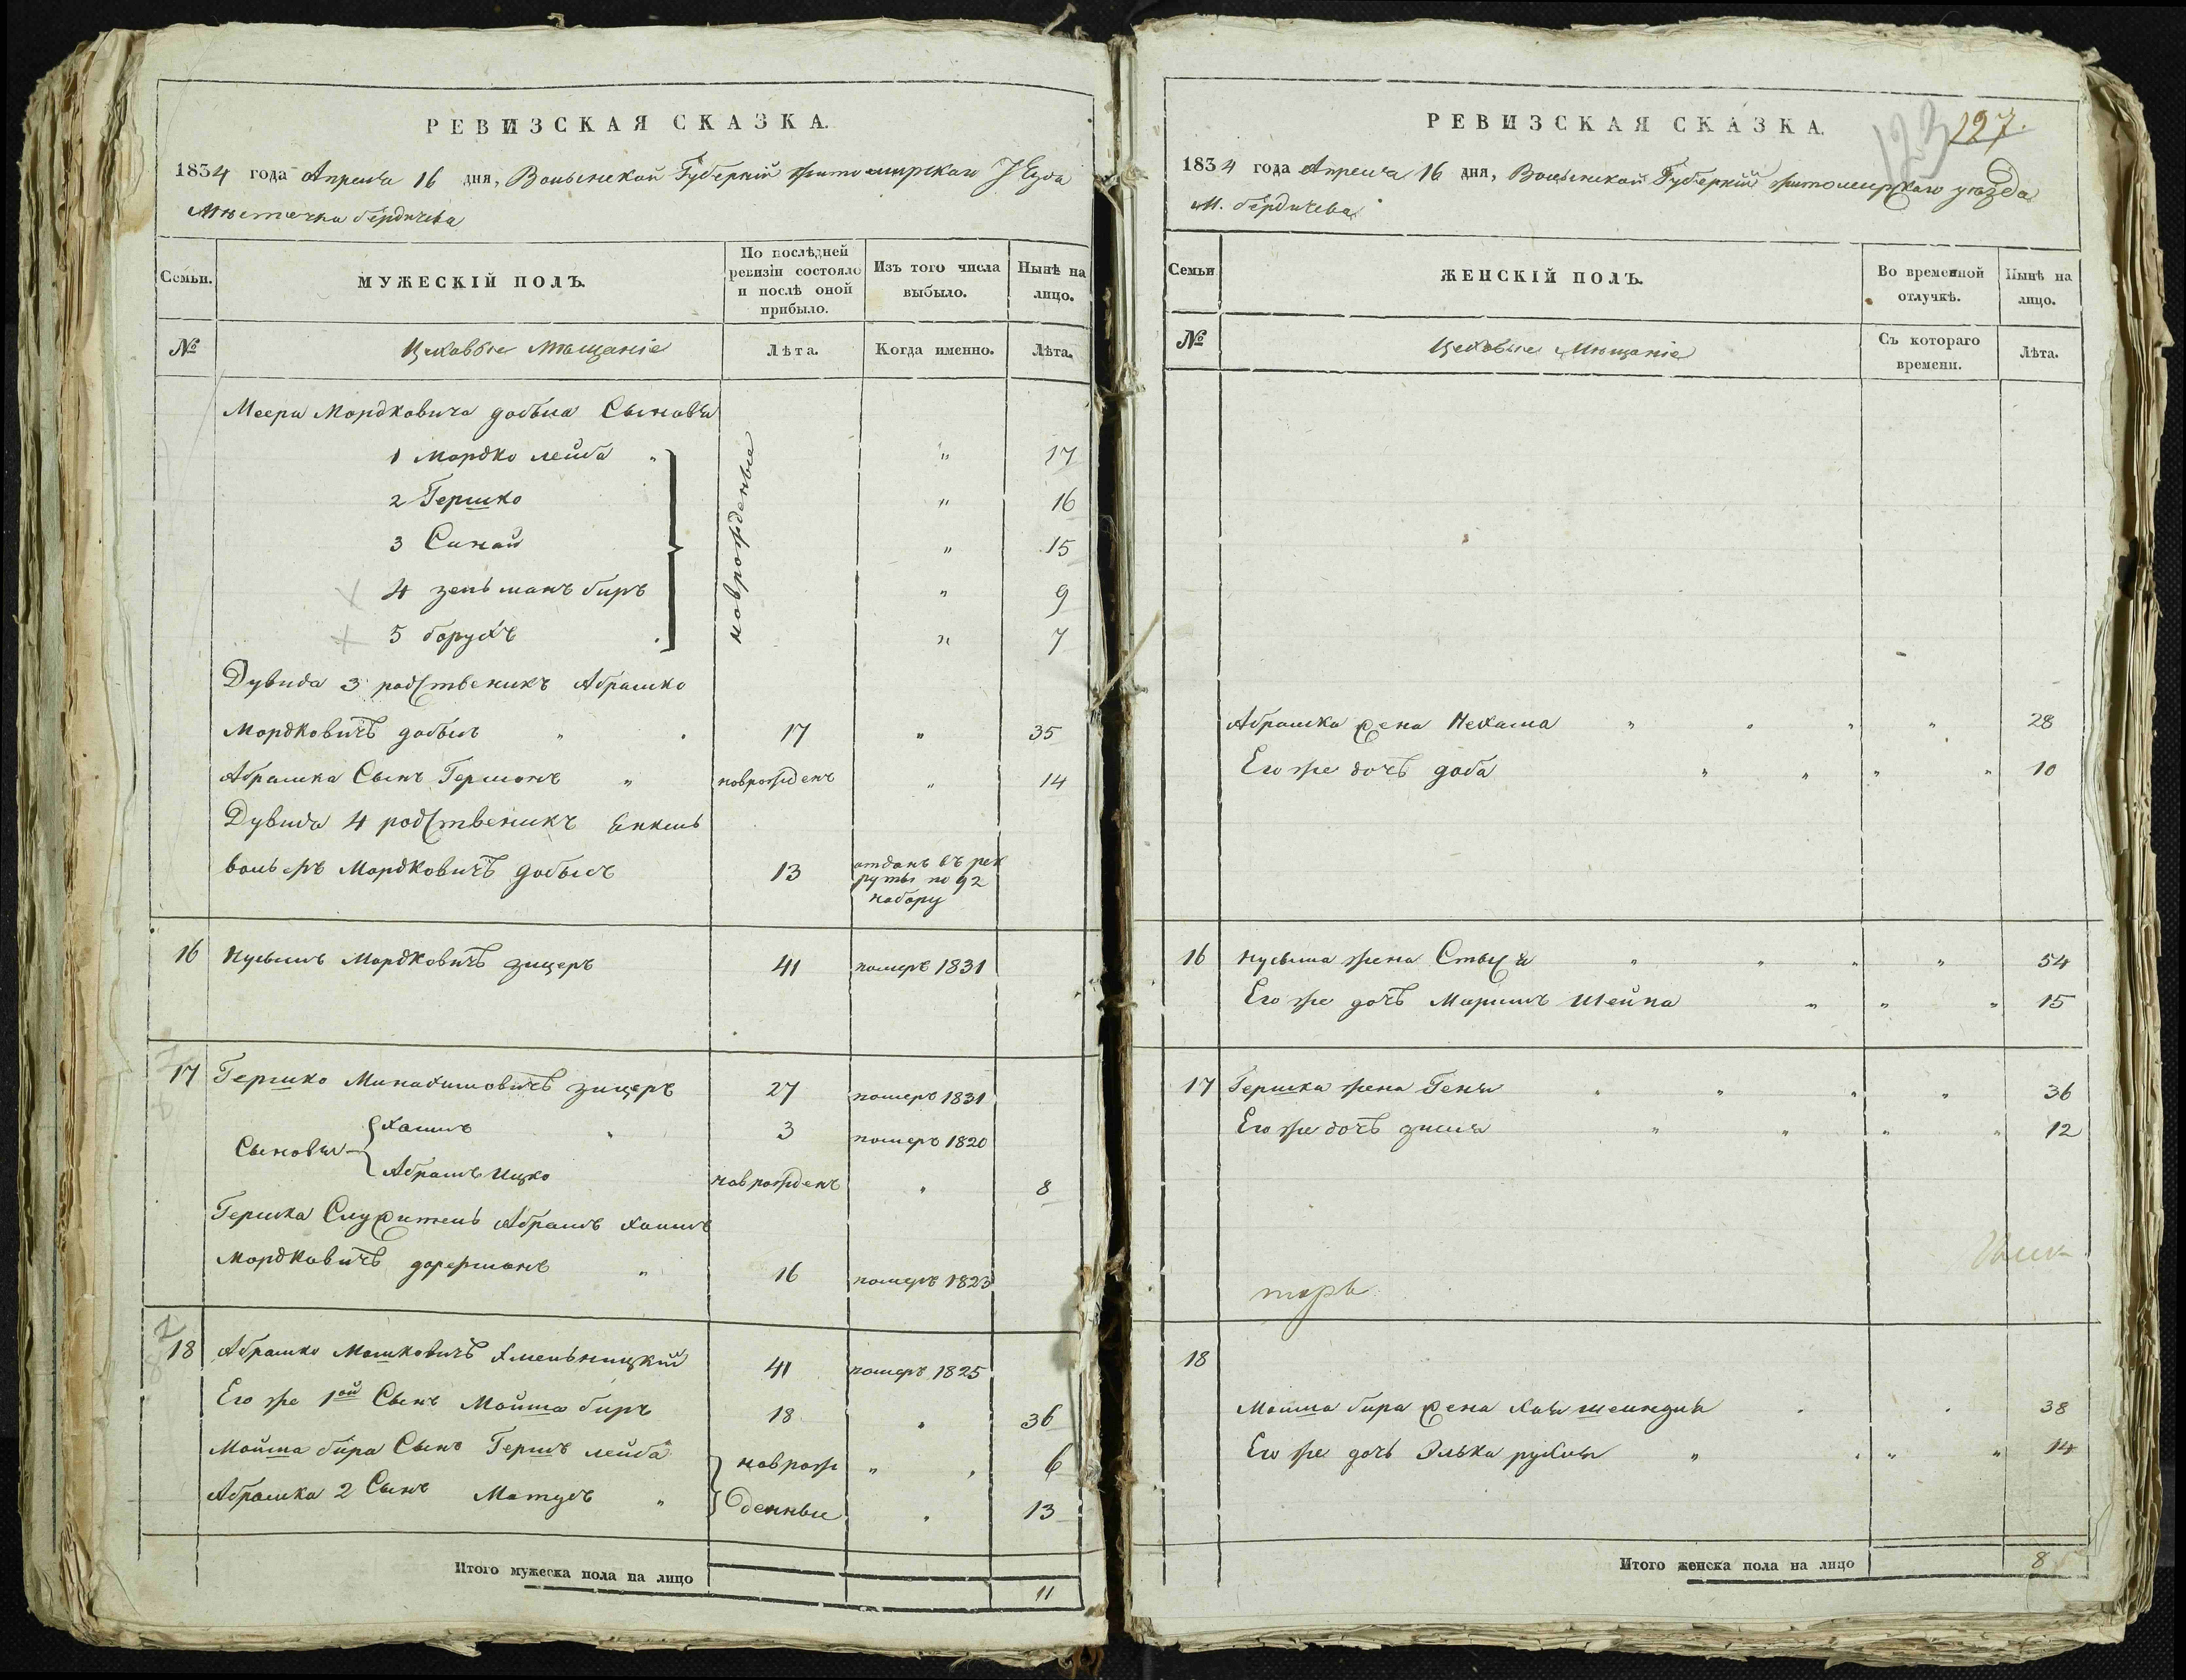 РЕВИЗСКАЯ СКАЗКА.
1834 года Апреля 16 дня, Волынской Губернии житомирскаго уезда
Местечка бердичева
Семьи.
МУЖЕСКІЙ ПОЛЪ.
По послѣдней ревизіи состояло и послѣ оной прибыло.
Изъ того числа выбыло.
Нынѣ на лицо.
№
Цеховые Мещаніе
Лѣта.
Когда именно.
Лѣта.
Меера Мордковича добыса Сыновья
новрожденые
1 Мордко лейба " 17
2 Гершко " 16
3 Синай " 15
4 зельманъ биръ " 9
5 борухъ " 7
Дувида 3 родственикъ Абрашко
Мордковичъ добысъ 17 " 35
Абрашка Сынъ Гершонъ новрожденъ " 14
Дувида 4 родственикъ Енкель
вольфъ Мордковичъ добысъ 13 отданъ въ рек
руты по 92
набору
16 Нусимъ Мордковичъ зицеръ 41 померъ 1831
17 Гершко Минахимовичъ зицеръ 27 померъ 1831
Сыновья
Хаимъ 3 померъ 1820
Абрамъ Ицко новрожденъ " 8
Гершка Служитель Абрамъ хаимъ
Мордковичъ дорфманъ 16 померъ 1823
18 Абрашко Мошковичъ Хмельницкий 41 померъ 1825
Его же 1ой Сынъ Мойша биръ 18 " 36
Мойша бира Сынъ Гершъ лейба новрож " 6
Абрашка 2 Сынъ Матусъ денные " 13
Итого мужеска пола на лицо 11
РЕВИЗСКАЯ СКАЗКА.
123 127.
1834 года Апреля 16 дня, Волынской Губернии житомирскаго уезда
М. бердичева
Семьи
ЖЕНСКІЙ ПОЛЪ.
Во временной отлучкѣ.
Нынѣ на лицо.
№
Цеховые Мещаніе
Съ котораго времени.
Лѣта.
Абрашка жена Нехама " " 28
Его же дочь доба " " 10
16 нусима жена Стыся " " 54
Его же дочь Мариамъ Шейна " " 15
17 Гершка жена Геня " " 36
Его же дочь зисля " " 12
18
Мойша бира жена хая шеиндля 38
Его же дочь Элька рухля " " 14
Итого женска пола на лицо 8